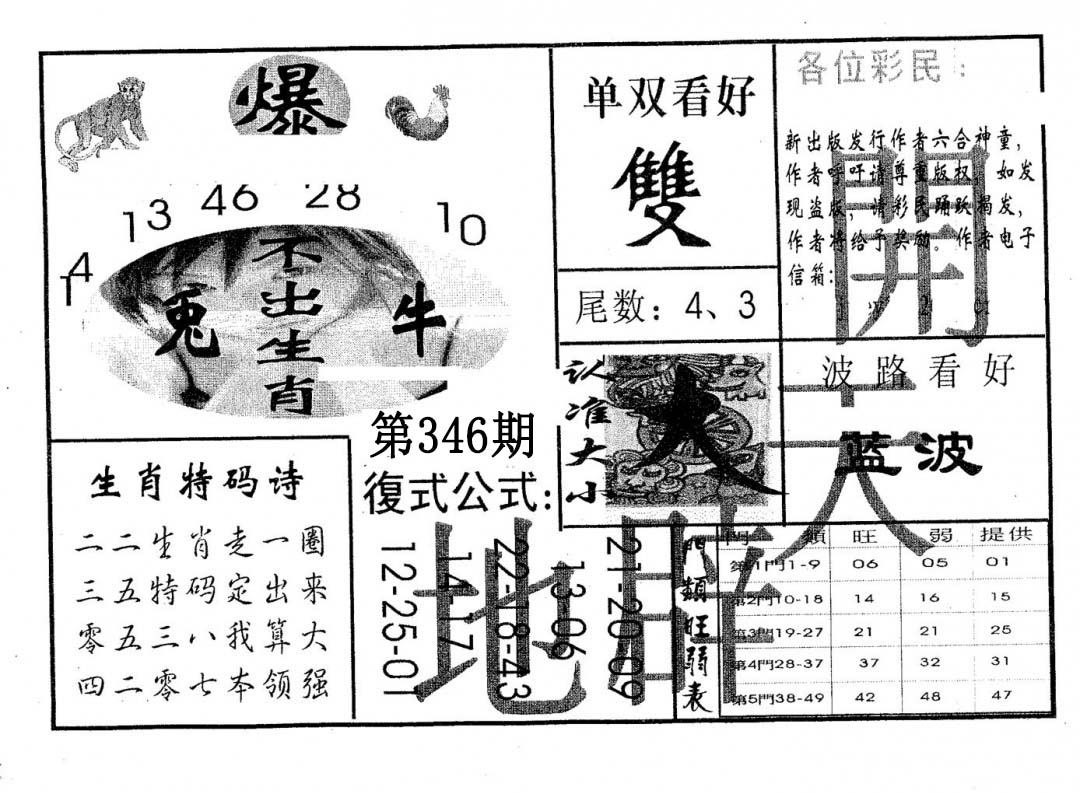 爆
13 46 28 10
14
不出生肖
兔 牛
单双看好
雙
尾数: 4、3
各位彩民:
新出版发行作者六合神童,
作者呼吁请尊重版权,如发
现盗版,请彩民踊跃揭发,
作者将给予奖励。作者电子
信箱:
開
认准大小
大
波路看好
蓝波
天
第346期
復式公式:
12-25-01
14-17
22-18-43
13-06
21-20-09
地
生肖特码诗
二二生肖走一圈
三五特码定出来
零五三八我算大
四二零七本领强
門類旺弱表
門 類 旺 弱 提供
第1門1-9 06 05 01
第2門10-18 14 16 15
第3門19-27 21 21 25
第4門28-37 37 32 31
第5門38-49 42 48 47